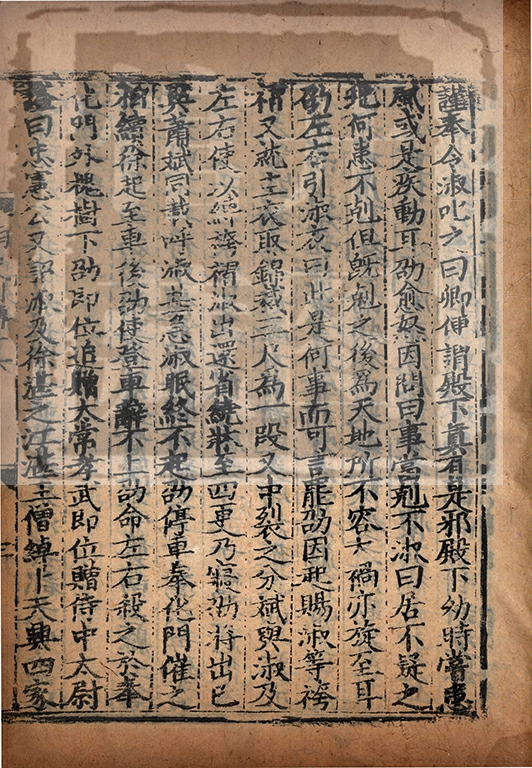 謹奉令淑叱之曰卿便謂殿下真有是邪殿下幼時嘗患
風或是疾動耳劭愈怒因問曰事當剋不淑曰居不疑之
地何患不剋但既剋之後爲天地所不容大禍亦旋至耳
劭左右引淑衣曰此是何事而可言罷劭因起賜淑等袴
褶又就主衣取錦裁三尺爲一段又中裂之分斌與淑及
左右使以縛袴褶淑出還省繞牀至四更乃寢劭將出已
與蕭斌同載呼淑甚急淑眠終不起劭停車奉化門催之
相續徐起至車後劭使登車辭不上劭命左右殺之於奉
化門外槐樹下劭即位追贈太常孝武即位贈侍中太尉
諡曰忠憲公又詔淑及徐湛之江湛王僧綽卜天與四家